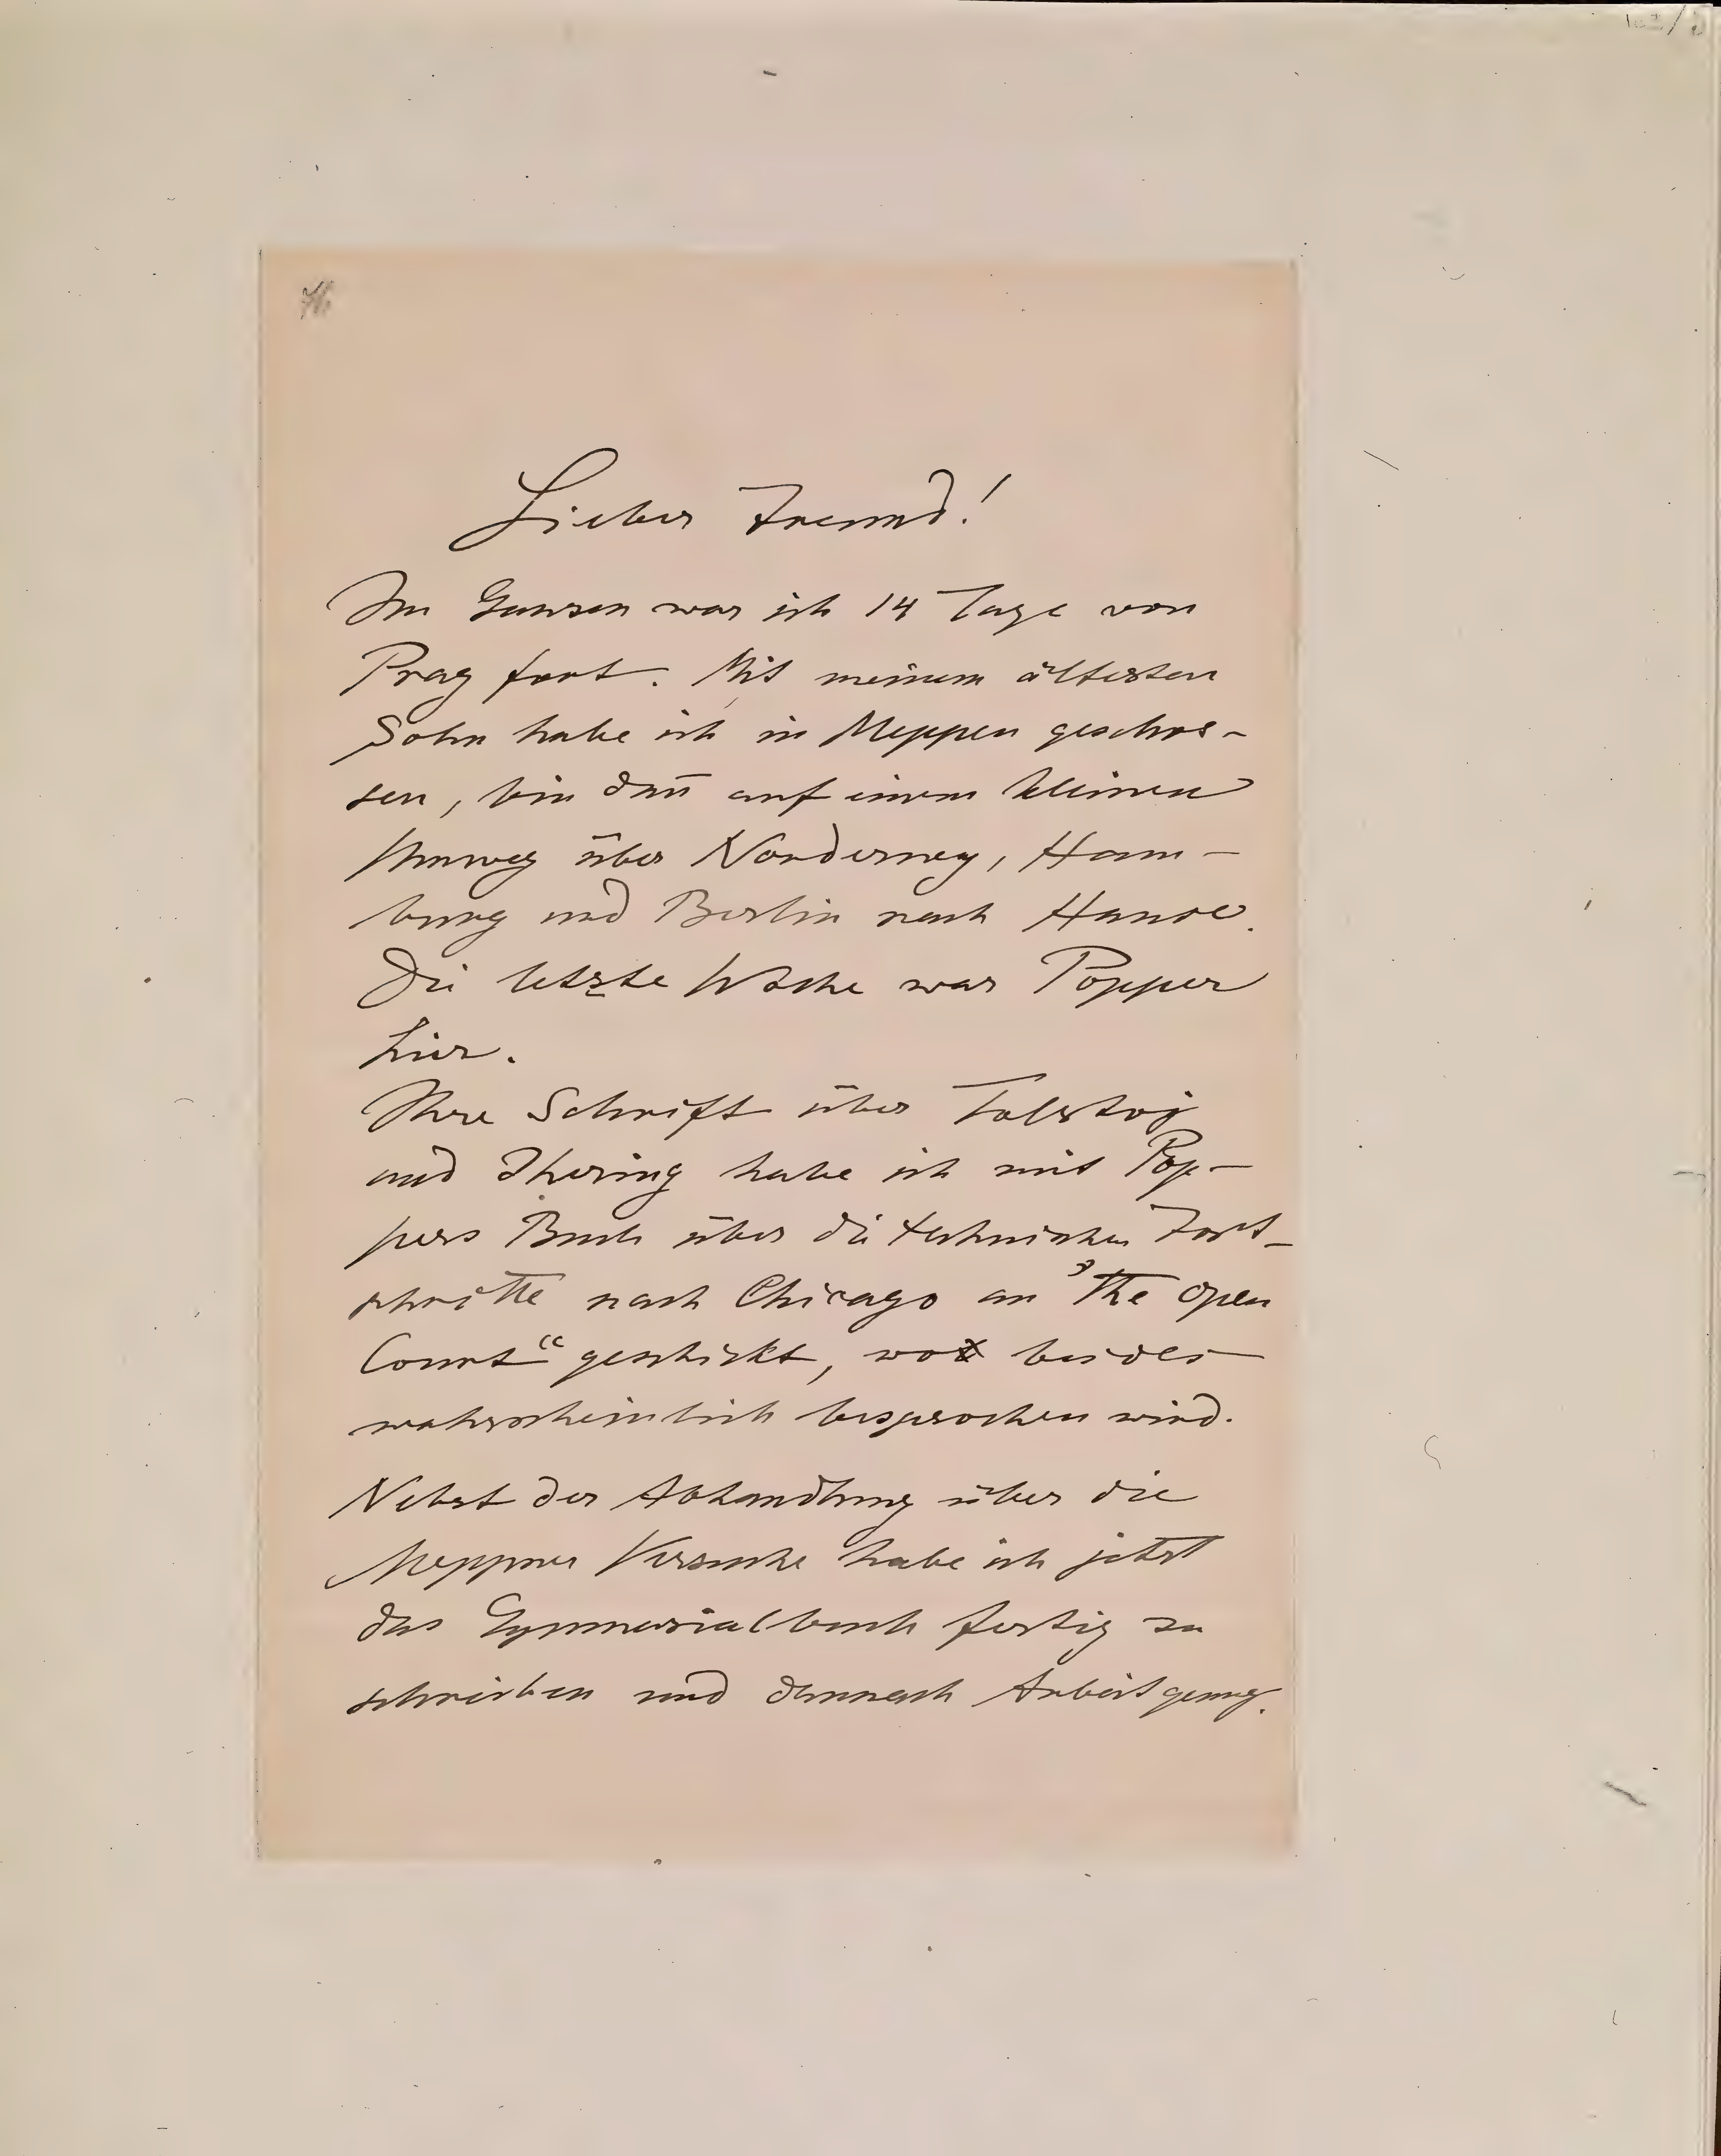 Lieber Freund!
Im Ganzen war ich 14 Tage von
Prag fort. Mit meinem ältesten
Sohn habe ich in Meppen geschos-
sen, bin dan̄ auf einem kleinen
Umweg über Norderney, Ham-
burg und Berlin nach Hause.
Die letzte Woche war Popper
hier.
Ihre Schrift über Tolstoj
und Ihering habe ich mit Pop-
pers Buch über die technischen Fort-
schritte nach Chicago an "The open
Court“ geschickt, wo beides
wahrscheinlich besprochen wird.
Nebst der Abhandlung über die
Meppner Versuche habe ich jetzt
das Gymnasialbuch fertig zu
schreiben und demnach Arbeit genug.